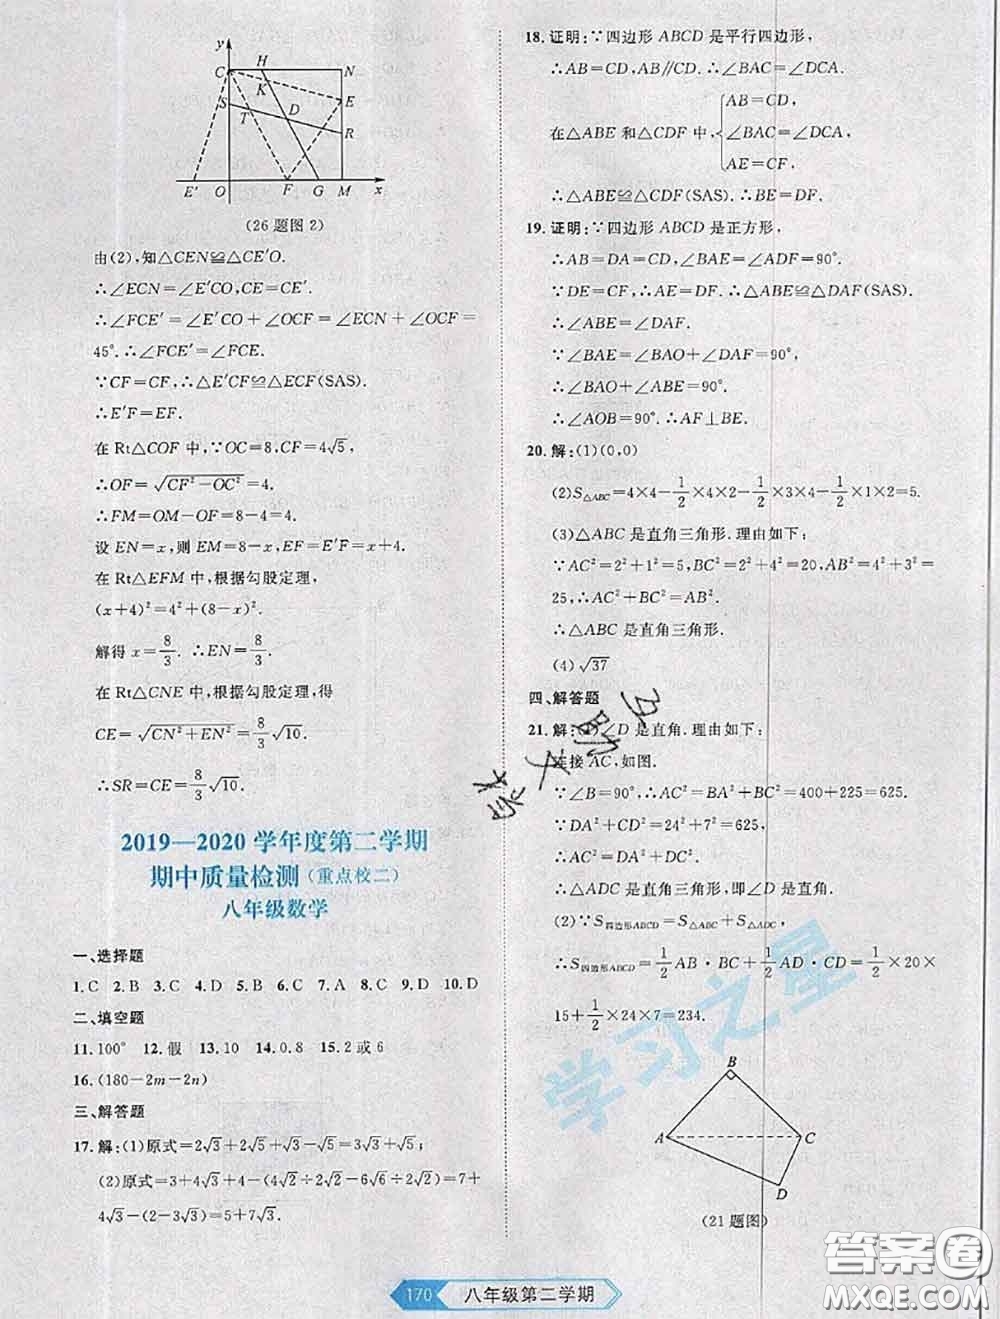 y
H
C
N
K
E
S
D
T
R
E′
O
F
G
M
x
(26题图2)
由(2),知△CEN≌△CE′O.
∴∠ECN=∠E′CO,CE=CE′.
∴∠FCE′=∠E′CO+∠OCF=∠ECN+∠OCF=
45°.∴∠FCE′=∠FCE.
∵CF=CF,∴△E′CF≌△ECF(SAS).
∴E′F=EF.
在Rt△COF中,∵OC=8,CF=4√5,
∴OF=√(CF²-OC²)=4.
∴FM=OM-OF=8-4=4.
设EN=x,则EM=8-x,EF=E′F=x+4.
在Rt△EFM中,根据勾股定理,
(x+4)²=4²+(8-x)².
解得x=8/3.∴EN=8/3.
在Rt△CNE中,根据勾股定理,得
CE=√(CN²+EN²)=8/3√10.
∴SR=CE=8/3√10.
2019—2020学年度第二学期
期中质量检测(重点校二)
八年级数学
一、选择题
1.C 2.B 3.C 4.D 5.B 6.C 7.A 8.C 9.D 10.D
二、填空题
11.100° 12.假 13.10 14.0.8 15.2或6
16.(180-2m-2n)
三、解答题
17.解:(1)原式=2√3+2√5+√3-√5=3√3+√5;
(2)原式=3+4√3-(2√12-6√6÷2√2)=7+
4√3-(2-3√3)=5+7√3.
18.证明:∵四边形ABCD是平行四边形,
∴AB=CD,AB∥CD.∴∠BAC=∠DCA.
在△ABE和△CDF中,{AB=CD,
∠BAC=∠DCA,
AE=CF.
∴△ABE≌△CDF(SAS).∴BE=DF.
19.证明:∵四边形ABCD是正方形,
∴AB=DA=CD,∠BAE=∠ADF=90°.
∵DE=CF,∴AE=DF.∴△ABE≌△DAF(SAS).
∴∠ABE=∠DAF.
∵∠BAE=∠BAO+∠DAF=90°,
∴∠BAO+∠ABE=90°.
∴∠AOB=90°.∴AF⊥BE.
20.解:(1)(0,0)
(2)S△ABC=4×4-1/2×4×2-1/2×3×4-1/2×1×2=5.
(3)△ABC是直角三角形.理由如下:
∵AC²=2²+1²=5,BC²=2²+4²=20,AB²=4²+3²=
25,∴AC²+BC²=AB².
∴△ABC是直角三角形.
(4)√37
四、解答题
21.解:(1)∠D是直角.理由如下:
连接AC,如图.
∵∠B=90°,∴AC²=BA²+BC²=400+225=625.
∵DA²+CD²=24²+7²=625,
∴AC²=DA²+DC².
∴△ADC是直角三角形,即∠D是直角.
(2)∵S四边形ABCD=S△ABC+S△ADC,
∴S四边形ABCD=1/2AB·BC+1/2AD·CD=1/2×20×
15+1/2×24×7=234.
B
A
C
D
(21题图)
学习之星
答案圈
MXQE.COM
170 八年级第二学期